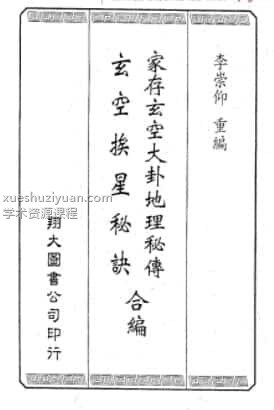 李崇仰 重編
家存玄空大卦地理秘傳
玄空挨星秘訣
合編
翔大圖書公司印行
xueshuziyuan.com
学术资源课程